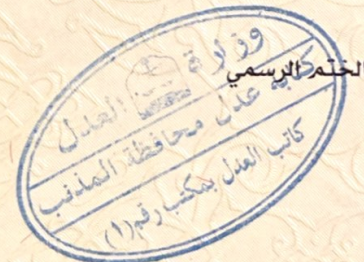 الختم الرسمي
وزارة العدل
كتابة عدل محافظة المذنب
كاتب العدل بمكتب رقم (١)